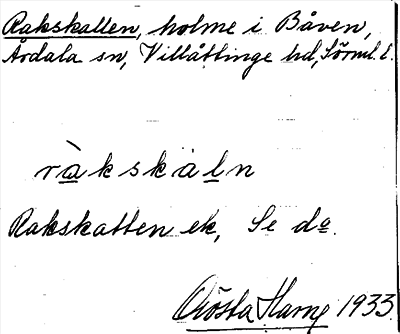 Rakskallen, holme i Båven,
Årdala sn, Villåttinge hd, Sörml. l.
ràkskàln
Rakskatten ek, Se do.
Gösta Harne 1933